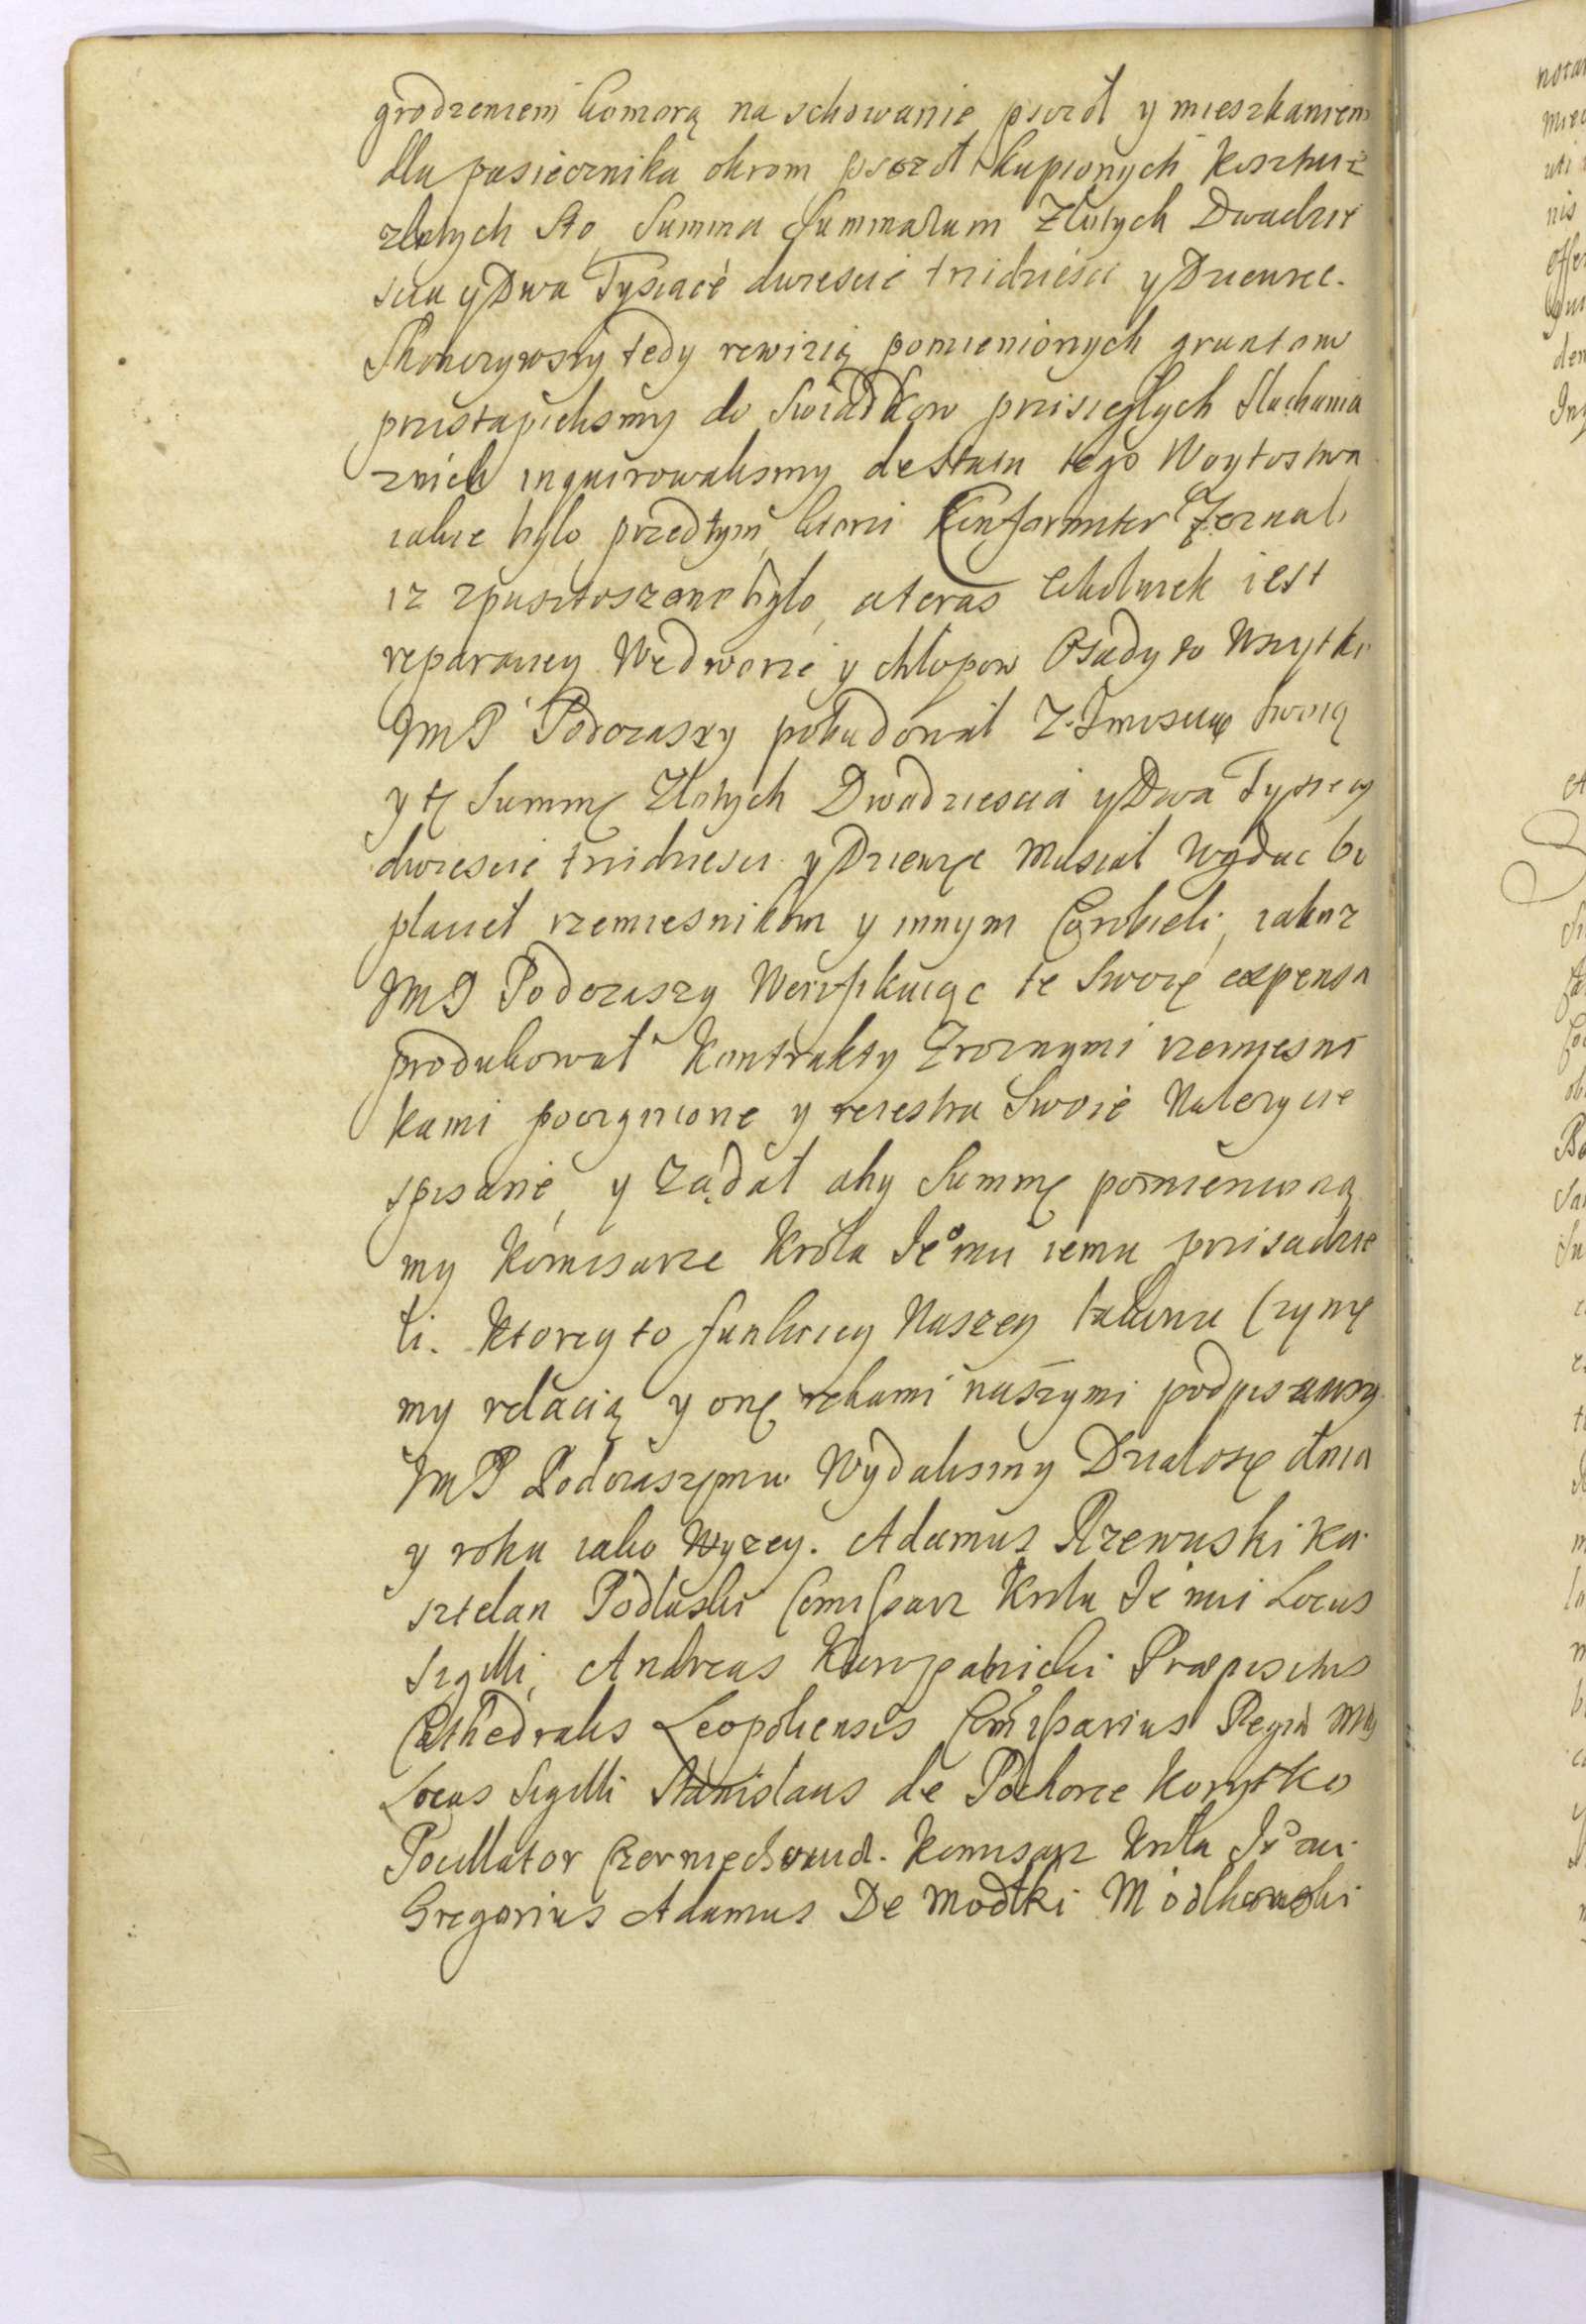 grodzeniem komorą na schowanie pszczół y mieszkaniem
dla pasiecznika okrom pszczół kupionych Kosztuie
złotych sto, Summa Summarum Złotych Dwadzie
scia y Dwa Tysiące dwiescie trzidziesci y Dziewięc.
Skonczywszy tedy rewizią pomienionych gruntow
przistapielismy do Swiadkow przisięgłych Sluchania
z nich inquirowalismy de statu tego Woytostwa
iakie było przedtym, ktorzi Conformiter Zeznali
iz zpustoszone było, a teras cokolwiek iest
reparacyey We dworze y chłopow Osady to Wszytko
JmP Podczaszy pobudował Z. Jmoscią Swoią
y tę Summę Złotych Dwadziescia y Dwa Tysięcy
dwiescie trzidziesci y Dziewięc Musiał Wydac bo
płacieł rzemiesnikom y innym Co robieli, iakoz
JmP Podczaszy Weryfikuiąc te Swoię expensa
produkował Kontrakty Z roznymi rzemiesni
kami poczynione y reiestra Swoie Nalezycie
spisane, y Ządał aby Summę pomienioną
my Komisarze Krola Jeo mci iemu prisadzie
li. Ktorey to funkciey Naszey takową Czynię
my relacią y onę rękami naszymi podpisawszy
JmP Podczaszemu Wydalismy Działosię dnia
y roku iako Wyzey. Adamus Rzewuski Ka
sztelan Podlaski Comissarz Krola Jeo mci Locus
Sigilli, Andreas Kuropatnicki Præpositus
Cathedralis Leopoliensis Comissarius Regiæ Mtis
Locus Sigilli Stanislaus de Pohorce Korytko
Pocillator Czerniechowien. Komisarz Krola Jeo mci
Gregorius Adamus De Modłki Modlkowski